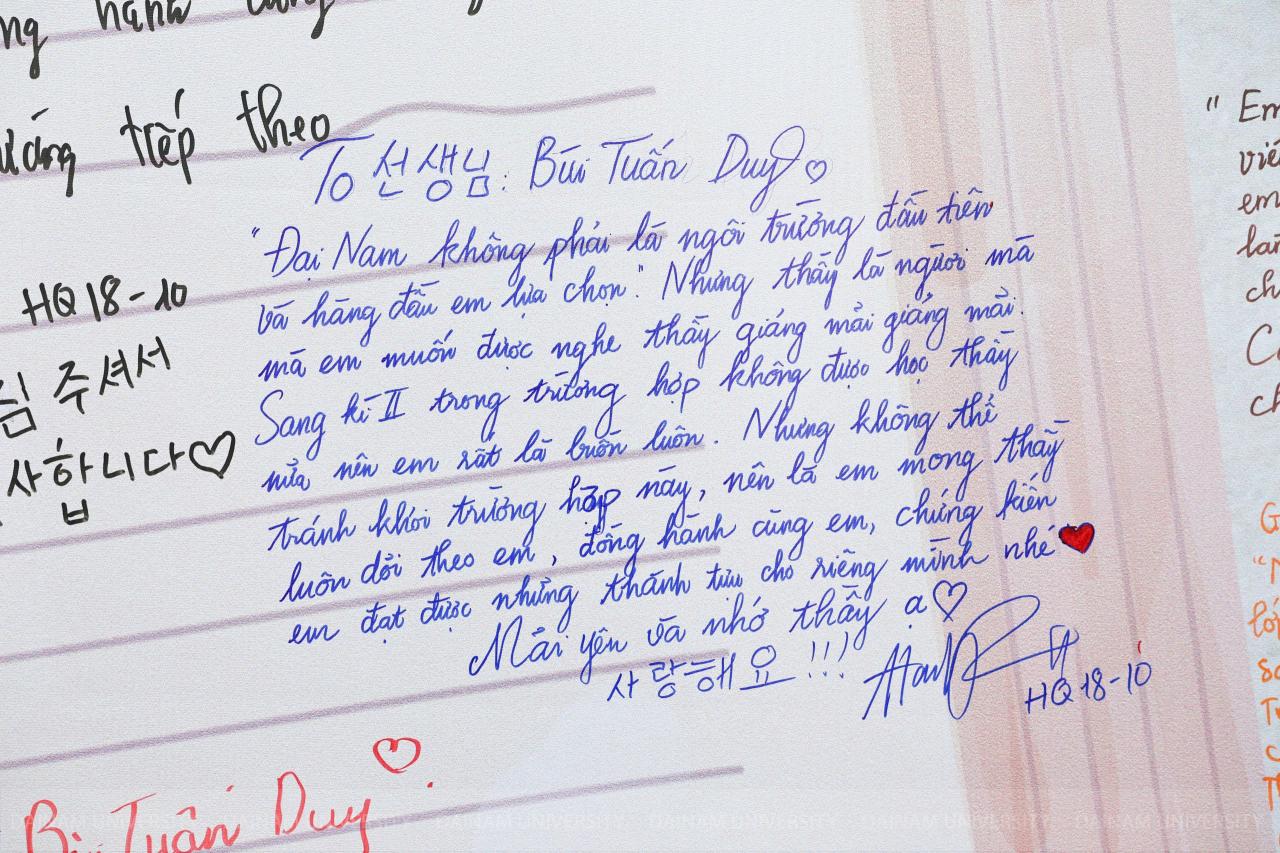 hành
tiếp theo
To 선생님: Bùi Tuấn Duy ♡
"Đại Nam không phải là ngôi trường đầu tiên
và hàng đầu em lựa chọn". Nhưng thầy là người mà
mà em muốn được nghe thầy giảng mãi giảng mãi.
Sang kì II trong trường hợp không được học thầy
nữa nên em rất là buồn luôn. Nhưng không thể
tránh khỏi trường hợp này, nên là em mong thầy
luôn dõi theo em, đồng hành cùng em, chứng kiến
em đạt được những thành tựu cho riêng mình nhé ❤
Mãi yên và nhớ thầy ạ ♡
사랑해요 !!!
HQ 18-10
HQ 18-10
주셔서
사합니다♡
Bùi Tuấn Duy ♡.
" Em
em
DAINAM UNIVERSITY DAINAM UNIVERSITY DAINAM UNIVERSITY DAINAM UNIVERSITY